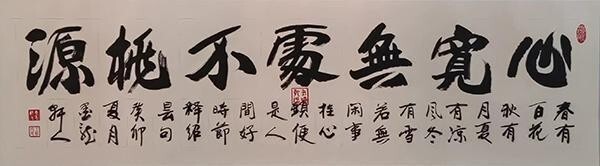 心寬無處不桃源
春有
百花
秋有
月夏
有凉
風冬
有雪
若無
闲事
挂心
頭便
是人
間好
時節
釋绍
昙句
癸卯
夏月
墨龙
轩人